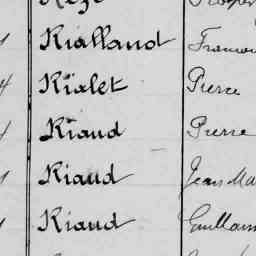 Rialland
Rialet Pierre
Riaud Pierre
Riaud Jean Ma
Riaud Guillaum